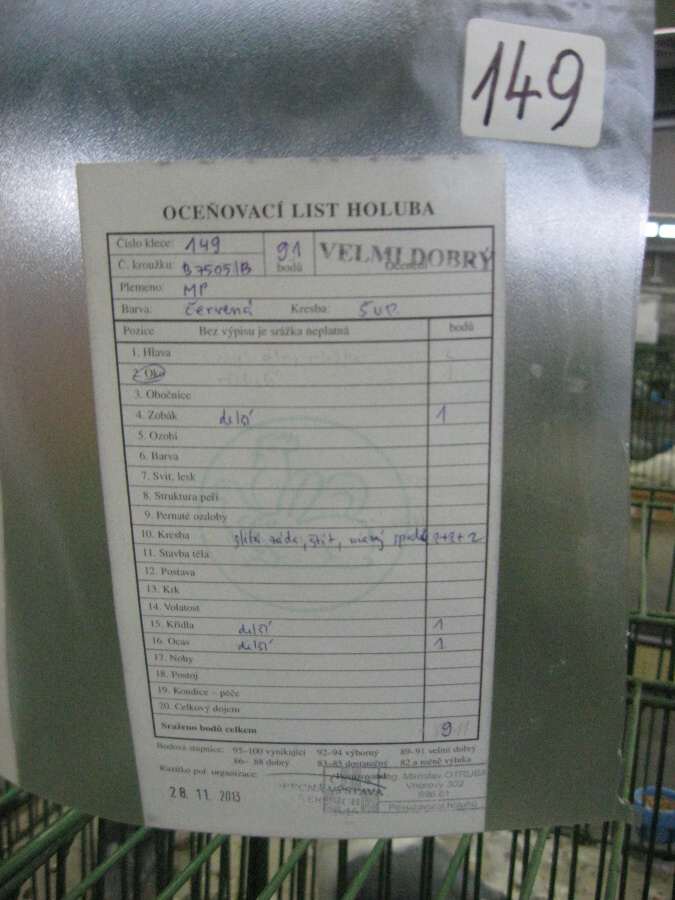 149
OCEŇOVACÍ LIST HOLUBA
Číslo klece: 149 91 bodů VELMI DOBRÝ
Č. kroužku: B7505/B Ocenění
Plemeno: MP
Barva: červená Kresba: šup.
Pozice Bez výpisu je srážka neplatná bodů
1. Hlava
2. Oko
3. Obočnice
4. Zobák delší 1
5. Ozobí
6. Barva
7. Svit, lesk
8. Struktura peří
9. Pernaté ozdoby
10. Kresba záda, štít, 2+2+2
11. Stavba těla
12. Postava
13. Krk
14. Volatost
15. Křídla delší 1
16. Ocas delší 1
17. Nohy
18. Postoj
19. Kondice – péče
20. Celkový dojem
Sraženo bodů celkem 9
Bodová stupnice: 95–100 vynikající 92–94 výborný 89–91 velmi dobrý
86– 88 dobrý 83–85 dostatečný 82 a méně výluka
Razítko poř. organizace: Ing. Miroslav OTRUBA
Vnorovy 302
696 61
28. 11. 2013 SPECIÁLNÍ VÝSTAVA
Posuzovatel holubů